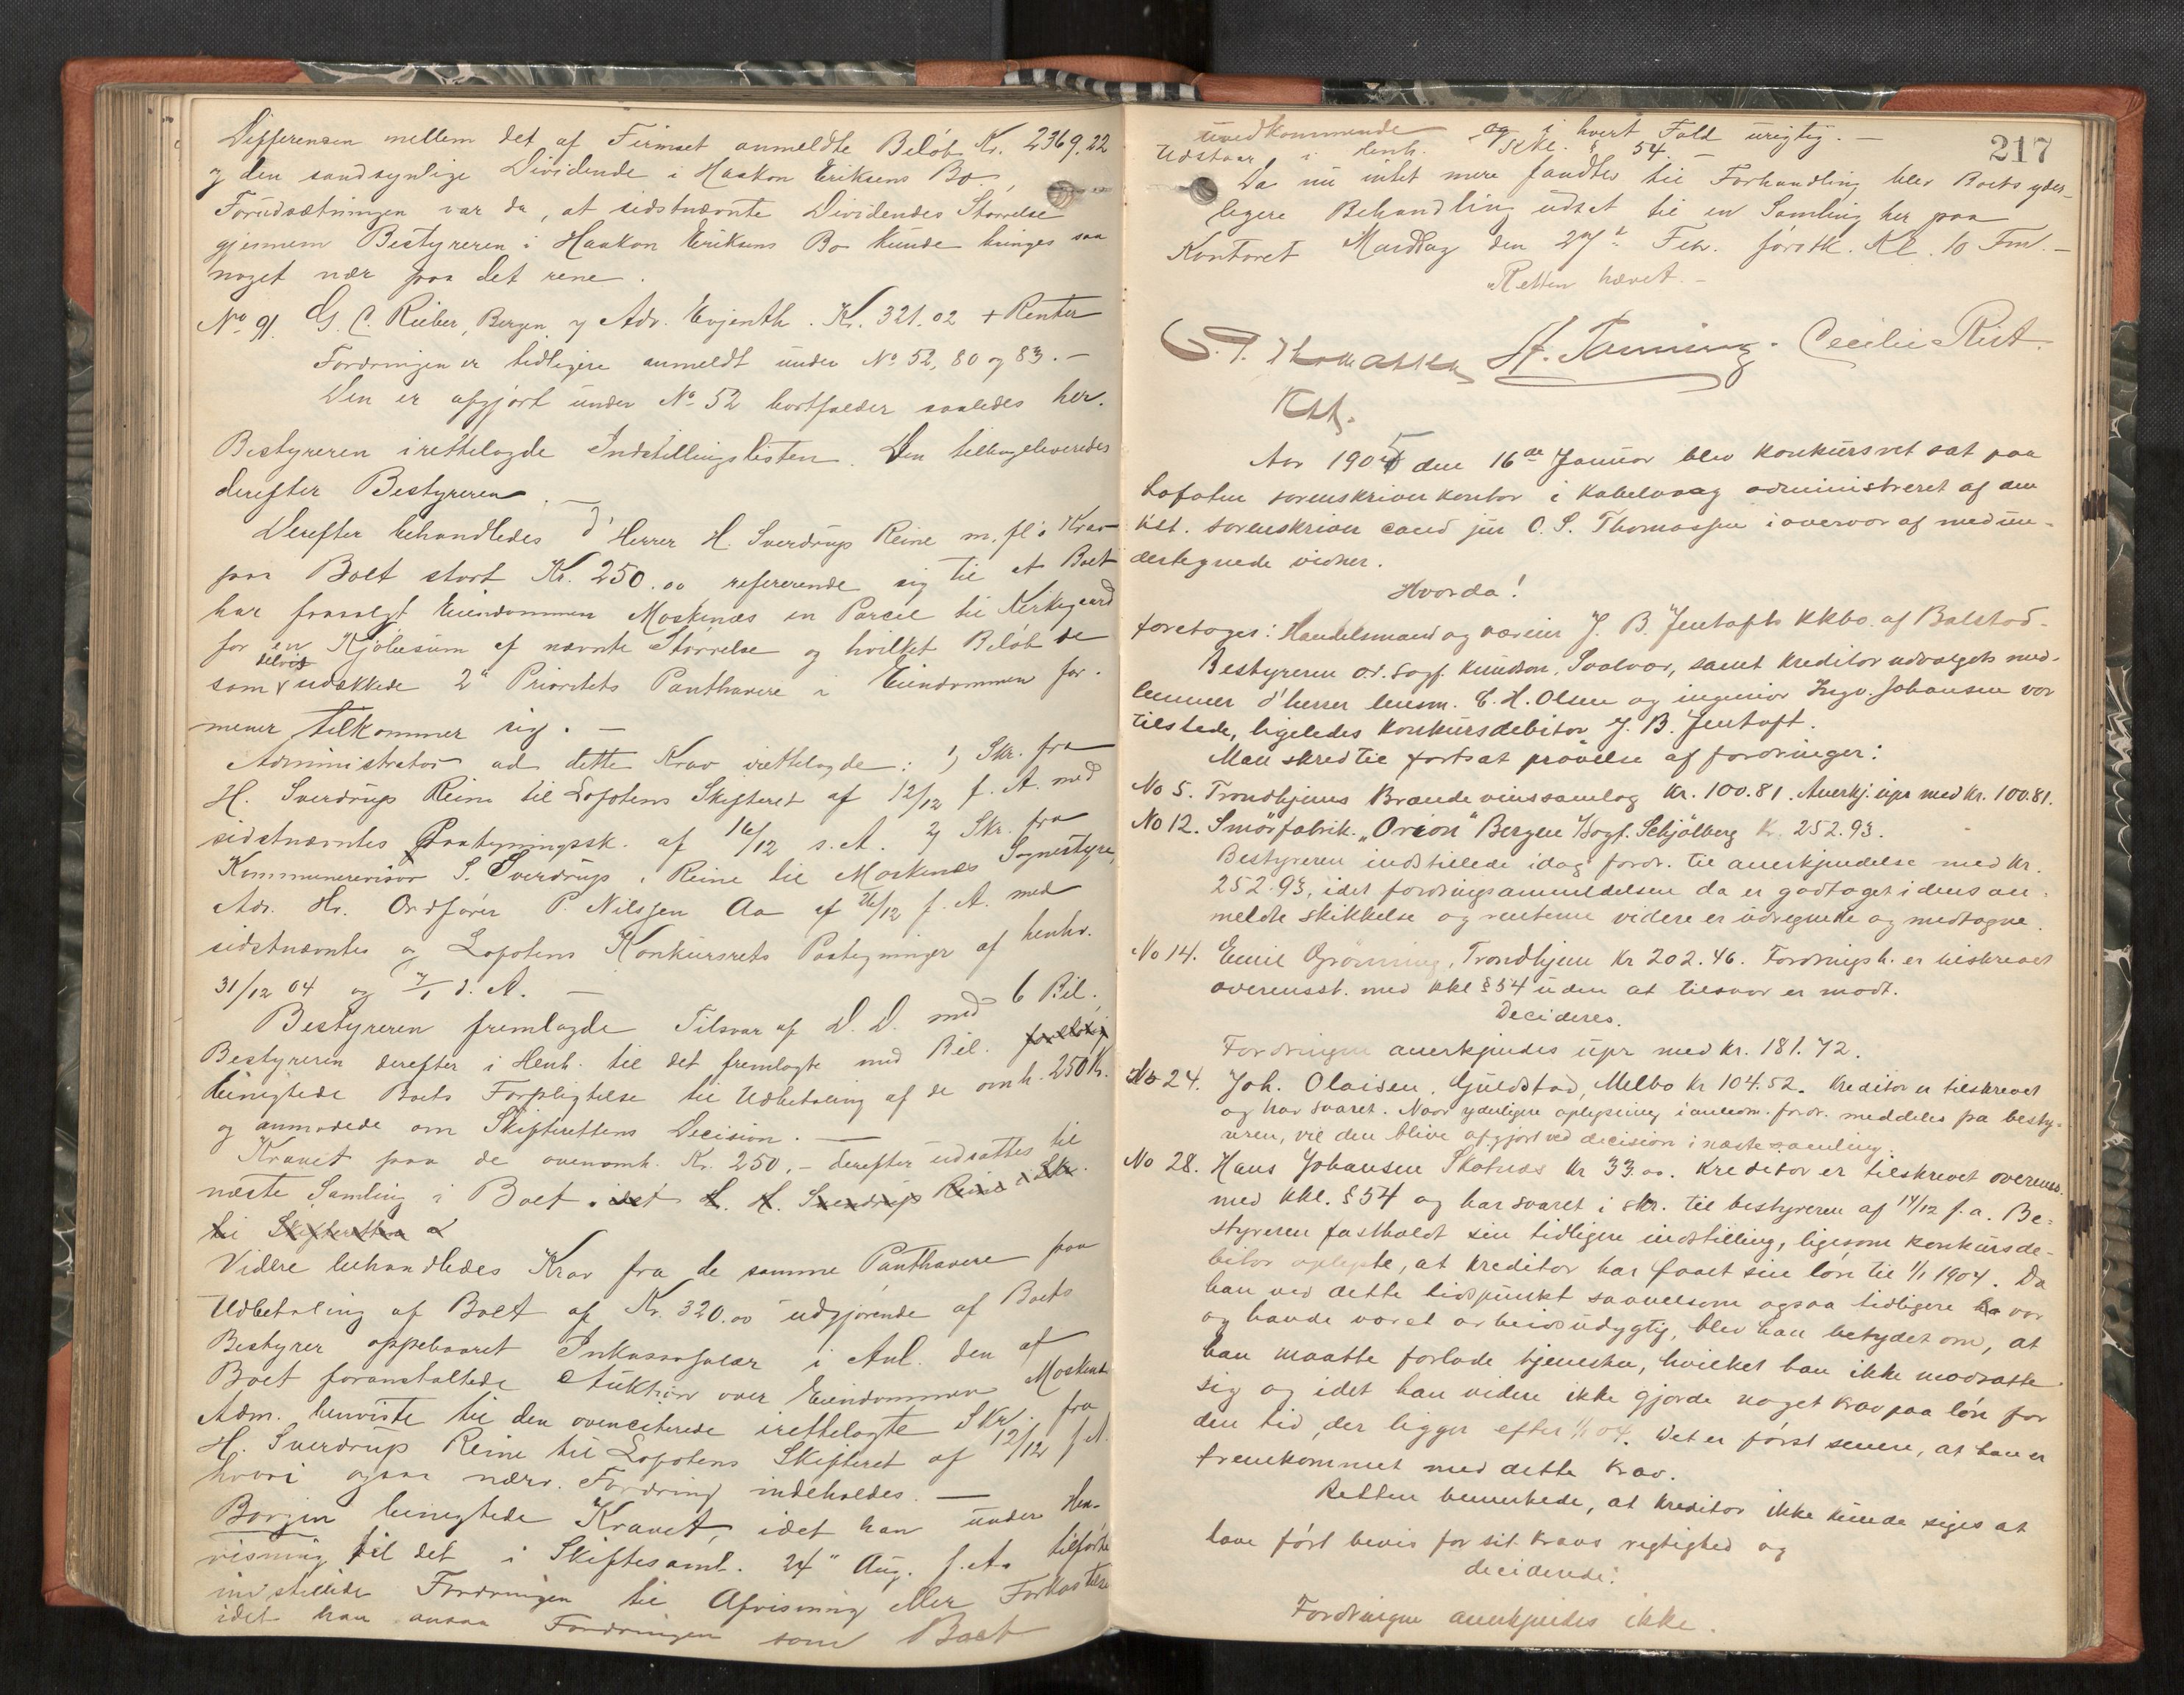 Differensen mellem det af Firmaet anmeldte Beløb Kr. 2369.22
og den sandsynlige Dividende i Haakon Eriksens Bo.
Forudsætningen var da, at sidstnævnte Dividendes Størrelse
gjennem Bestyreren i Haakon Eriksens Bo kunde bringes saa
noget nær paa det rene.
No 91. G. C. Rieber, Bergen v/ Adv. Evjenth. Kr. 321.02 + Renter
Fordringen er tidligere anmeldt under No 52, 80 og 83. –
Den er afgjort under No 52 bortfalder saaledes her.
Bestyreren irettelagde Indstillingslisten. Den tilbageleveredes
derefter Bestyreren. –
Derefter behandledes d'Herrer H. Sverdrup Reine m. fl's Krav
paa Boet stort Kr. 250.00 refererende sig til at Boet
har frasolgt Eiendommen Moskenæs en Parcel til Kirkegaard
for en Kjøbesum af nævnte Størrelse og hvilket Beløb de
som delvis udækkede 2den Prioritets Panthavere i Eiendommen for-
mener tilkommer sig. –
Administrator ad dette Krav irettelagde: 1) Skr. fra
H. Sverdrup Reine til Lofotens Skifteret af 12/12 f. A. med
sidstnævntes Paategningssk. af 16/12 s. A. 2) Skr. fra
Kommunerevisor S. Sverdrup, Reine til Moskenæs Sognestyre,
Adr. Hr. Ordfører P. Nilssen Aa af 26/12 f. A. med
sidstnævntes og Lofotens Konkursrets Paategninger af henhv.
31/12 04 og 7/1 d. A. –
Bestyreren fremlagde Tilsvar af D. D. med 6 Bil.
Bestyreren derefter i Henh. til det fremlagte med Bil.
benegtede Boets Forpligtelse til Udbetaling af de omh. 250 Kr.
og anmodede om Skifterettens Decision. –
Kravet paa de ovenomh. Kr. 250,- derefter udsattes til
næste Samling i Boet. idet H. H. Sverdrup Reine i Skr.
til Skifteretten
Videre behandledes Krav fra de samme Panthavere paa
Udbetaling af Boet af Kr. 320.00 udgjørende af Boets
Bestyrer oppebaaret Inkassosalær i Anl. den af
Boet foranstaltede Auktion over Eiendommen Moskenæs
Adm. henviste til den ovenciterede irettelagte Skr. fra
H. Sverdrup Reine til Lofotens Skifteret af 12/12 f. A.
hvori ogsaa nærv. Fordring indeholdes. –
Borgen benegtede Kravet, idet han under Hen-
visning til det i Skiftesaml. 24de Aug. f. A. tilførte
indstillede Fordringen til Afvisning eller Forkastelse
idet han ansaa Fordringen som Boet
217
uvedkommende og i hvert Fald urigtig. –
Udstaar i Henh. Kkl. § 54. –
Da nu intet mere fandtes til Forhandling blev Boets yder-
ligere Behandling udsat til en Samling her paa
Kontoret Mandag den 27de Febr. førstk. Kl. 10 Fm. –
Retten hævet. –
O. S. Thomassen H. Tanning. Cecilie Rist.
Kst.
Aar 1905 den 16de Januar blev konkursret sat paa
Lofoten sorenskriverkontor i Kabelvaag administreret af den
kst. sorenskriver cand jur O. S. Thomassen i overvær af medun-
dertegnede vidner.
Hvorda!
foretoges: Handelsmand og væreier J. B. Jentofts kkbo. af Balstad.
Bestyreren o.r. sagf. Knudson, Svolvær, samt kreditorudvalgets med-
lemmer d'herrer lensm. C. H. Olsen og ingeniør Ingv. Johansen var
tilstede, ligeledes konkursdebitor J. B. Jentoft.
Man skred til fortsat prøvelse af fordringer:
No 5. Trondhjems Brændevinssamlag Kr. 100.81. Anerkj. upr med Kr. 100.81.
No 12. Smørfabrik. „Orion" Bergen v/sagf. Schjølberg Kr. 252.93.
Bestyreren indstillede idag fordr. til anerkjendelse med Kr.
252.93, idet fordringsanmeldelsen da er godtaget i dens an-
meldte skikkelse og renterne videre er udregnede og medtagne.
No 14. Emil Grønning, Trondhjem Kr 202.46. Fordringsh. er tilskrevet
overensst. med kkl § 54 uden at tilsvar er modt.
Decideres.
Fordringen anerkjendes upr med Kr. 181.72.
No 24. Joh. Olaisen, Guldstad, Melbo Kr 104.52. Kreditor er tilskrevet
og har svaret. Naar yderligere oplysning i anledn. fordr. meddeles fra besty-
reren, vil den blive afgjort ved decision i næste samling.
No 28. Hans Johansen Skotnæs Kr 33.00. Kreditor er tilskrevet overenss.
med kkl. § 54 og har svaret i skr. til bestyreren af 14/12 f. a. Be-
styreren fastholdt sin tidligere indstilling, ligesom konkursde-
bitor oplyste, at kreditor har faaet sin løn til 1/1 1904. Da
han ved dette tidspunkt saavelsom ogsaa tidligere var
og havde været arbeidsudygtig, blev han betydet om, at
han maatte forlade tjenesten, hvilket han ikke modsatte
sig og idet han videre ikke gjorde noget krav paa løn for
den tid, der ligger efter 1/1 04. Det er først senere, at han er
fremkommet med dette krav.
Retten bemerkede, at kreditor ikke kunde siges at
have ført bevis for sit kravs rigtighed og
deciderede:
Fordringen anerkjendes ikke.